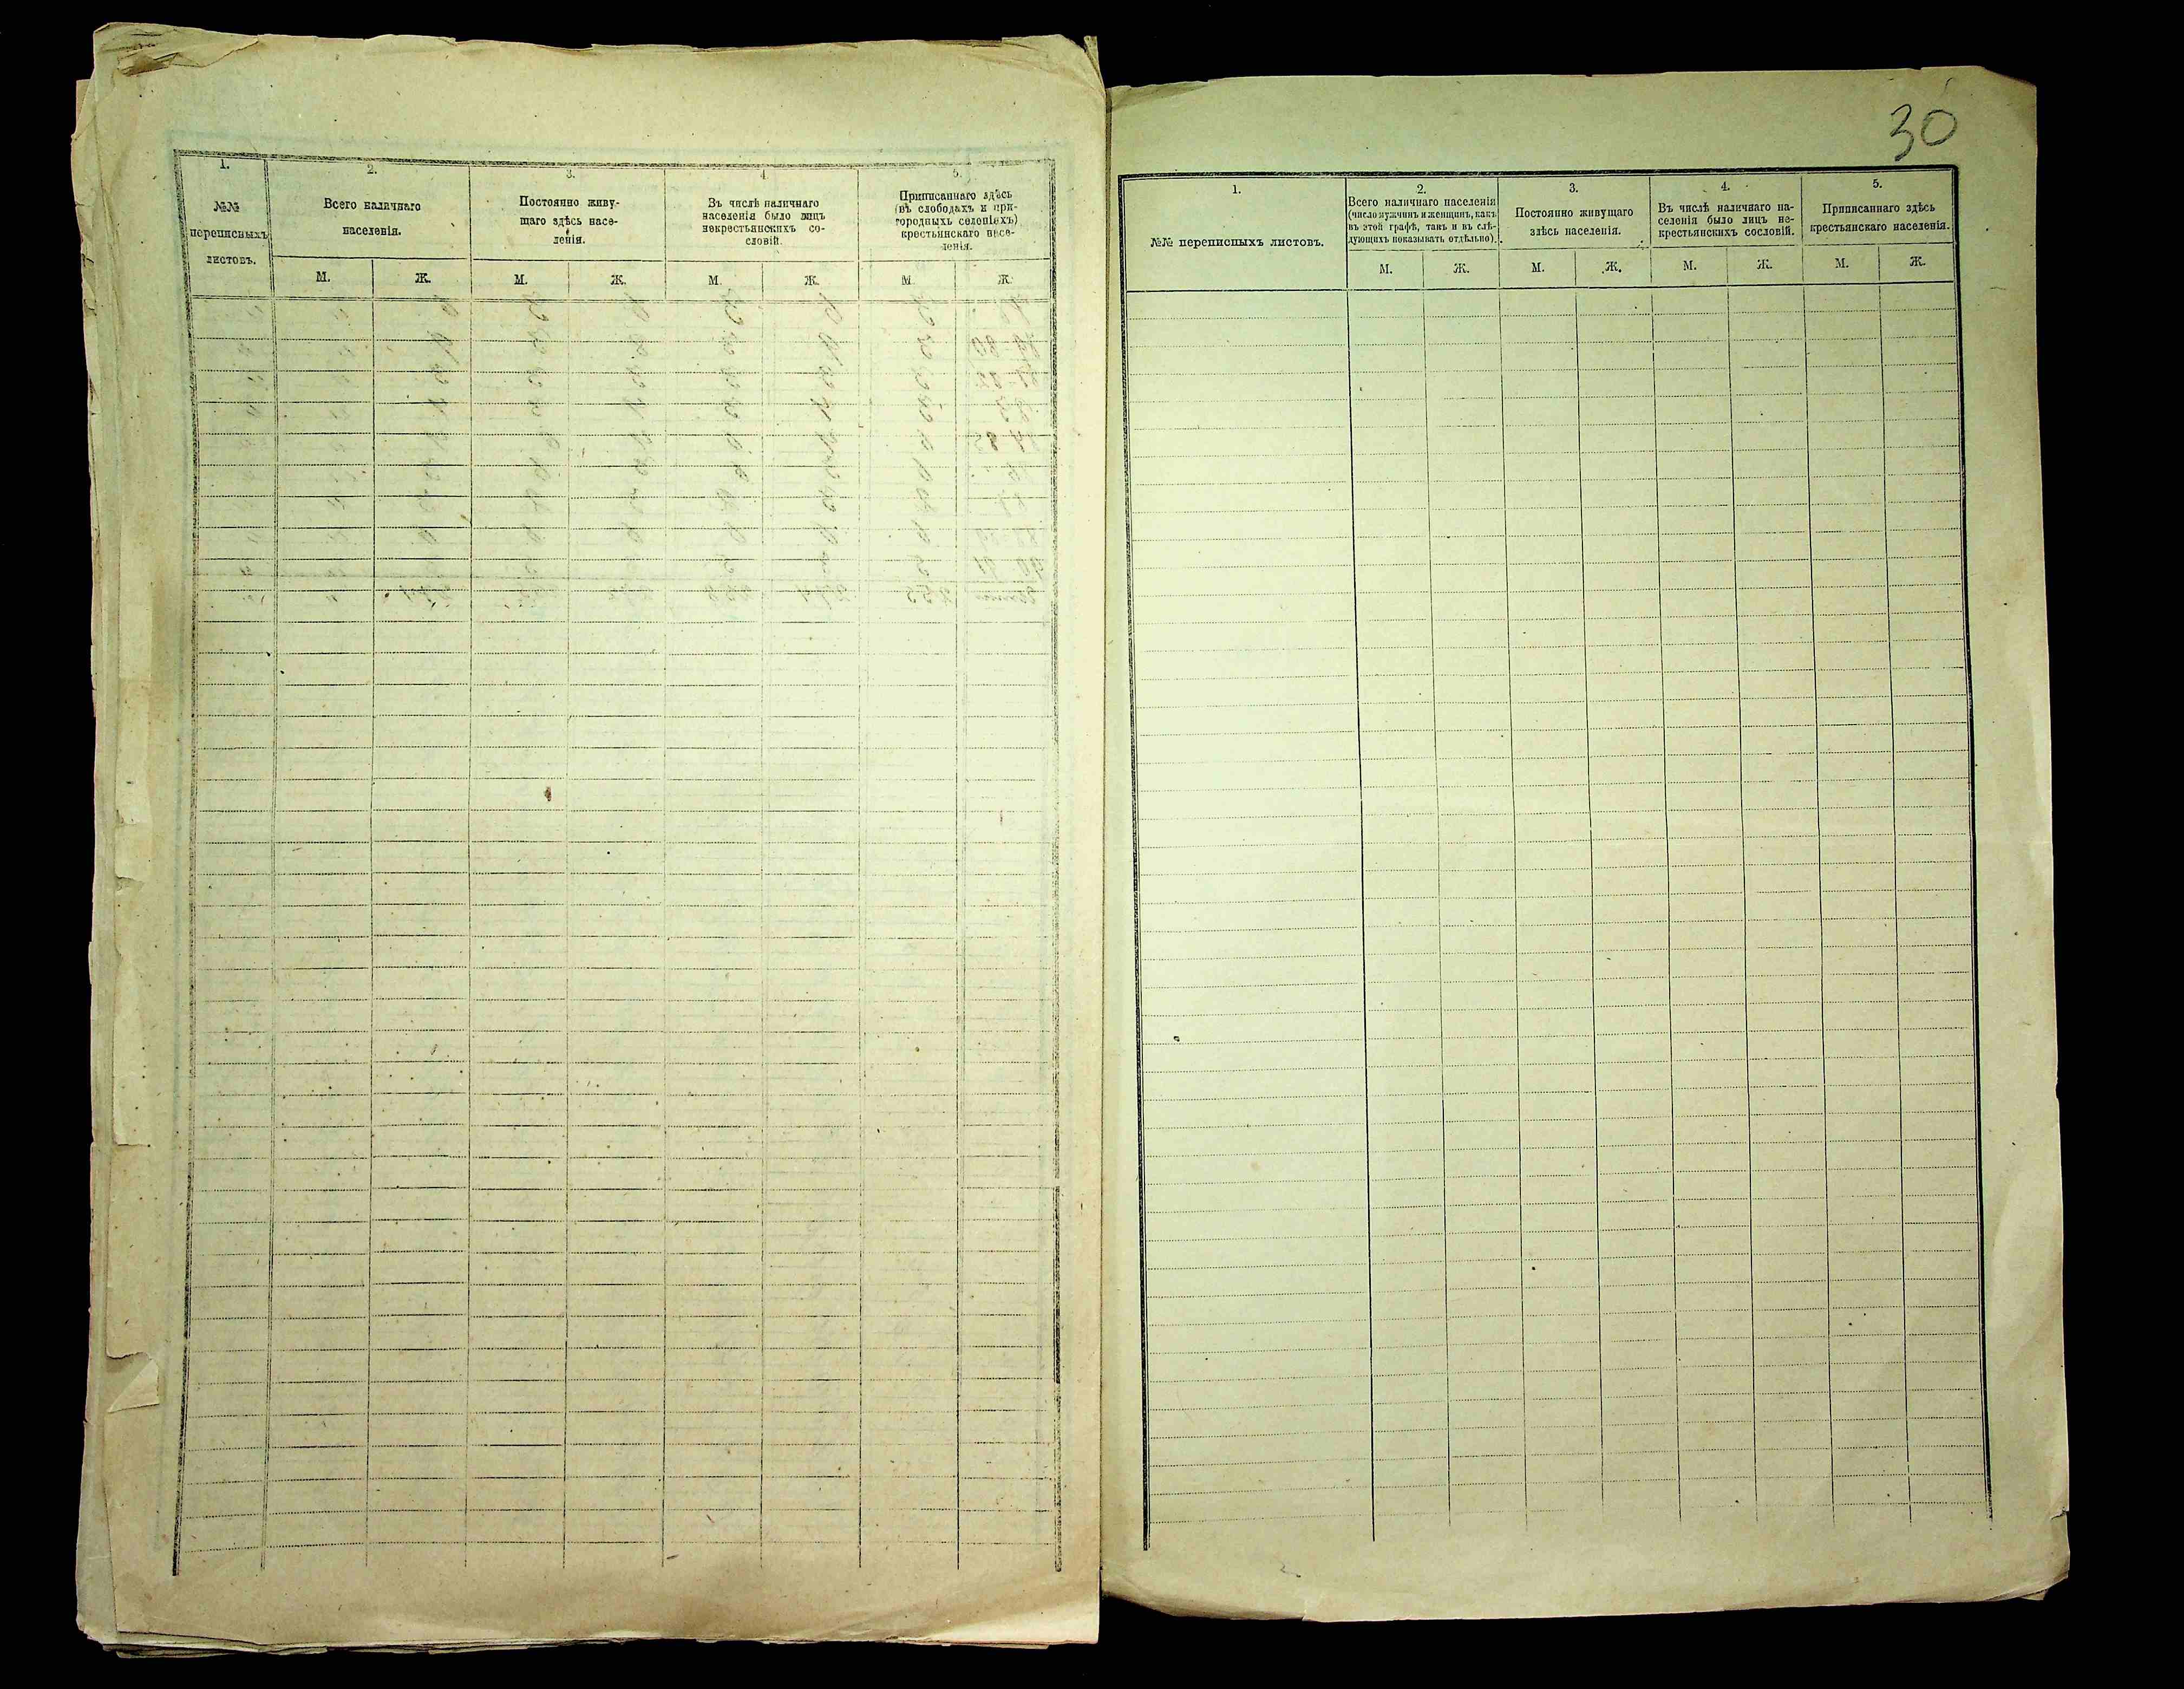 1.
№№
переписныхъ
листовъ.
2.
Всего наличнаго
населенія.
М. Ж.
3.
Постоянно живу-
щаго здѣсь насе-
ленія.
М. Ж.
4.
Въ числѣ наличнаго
населенія было лицъ
некрестьянскихъ со-
словій.
М. Ж.
5.
Приписаннаго здѣсь
(въ слободахъ и при-
городныхъ селеніяхъ)
крестьянскаго насе-
ленія.
М. Ж.
30
1.
№№ переписныхъ листовъ.
2.
Всего наличнаго населенія
(число мужчинъ и женщинъ, какъ
въ этой графѣ, такъ и въ слѣ-
дующихъ показывать отдѣльно).
М. Ж.
3.
Постоянно живущаго
здѣсь населенія.
М. Ж.
4.
Въ числѣ наличнаго на-
селенія было лицъ не-
крестьянскихъ сословій.
М. Ж.
5.
Приписаннаго здѣсь
крестьянскаго населенія.
М. Ж.